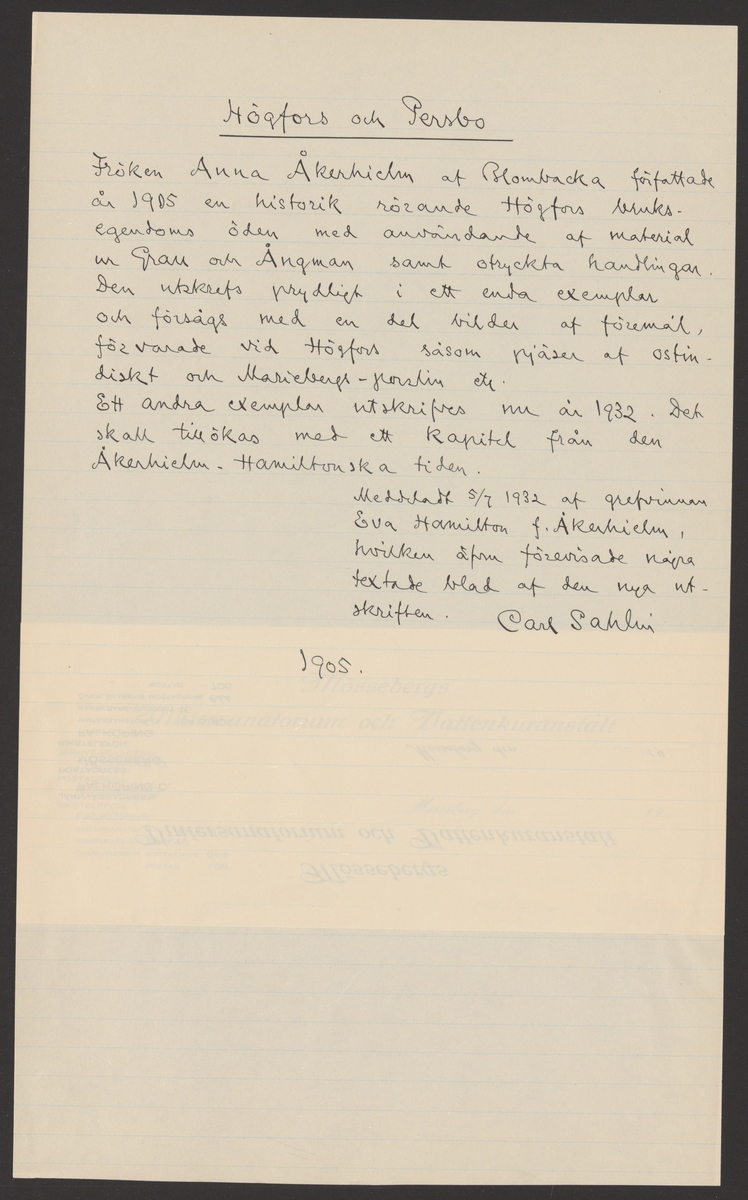 Högfors och Persbo
Fröken Anna Åkerhielm af Blombacka författade
år 1905 en historik rörande Högfors bruks-
egendoms öden med användande af material
ur Grau och Ångman samt otryckta handlingar.
Den utskrefs prydligt i ett enda exemplar
och försågs med en del bilder af föremål,
förvarade vid Högfors såsom pjäser af ostin-
diskt och Mariebergs-porslin etc.
Ett andra exemplar utskrifves nu år 1932. Det
skall tillökas med ett kapitel från den
Åkerhielm-Hamiltonska tiden.
Meddeladt 5/7 1932 af grefvinnan
Eva Hamilton f. Åkerhielm,
hvilken äfven förevisade några
textade blad af den nya ut-
skriften. Carl Sahlin
1905.
Mössebergs
Vintersanatorium och Vattenkuranstalt
Mösseberg den
Vintersanatorium och Vattenkuranstalt
Mössebergs